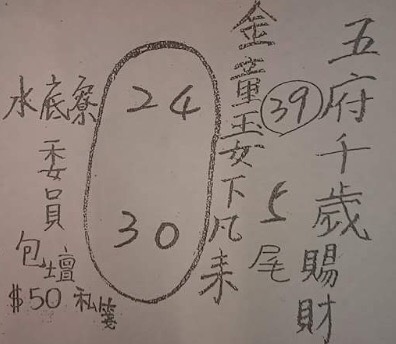 五府千歲賜財
39
5尾
金童玉女下凡來
24
30
水底寮
委員
包壇
$50 私箋